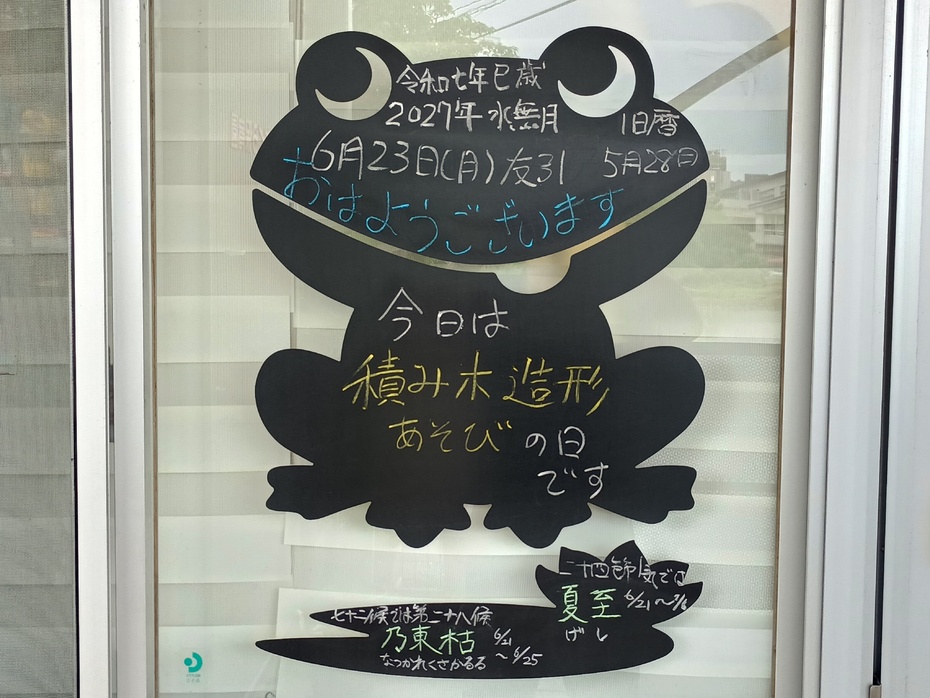 令和七年巳歳
2027年 水無月 旧暦
6月23日(月)友引 5月28日
おはようございます
今日は
積み木造形
あそびの日
です
二十四節気では
夏至 6/21～7/6
げし
七十二候では第二十八候
乃東枯 6/21～6/25
なつかれくさかるる